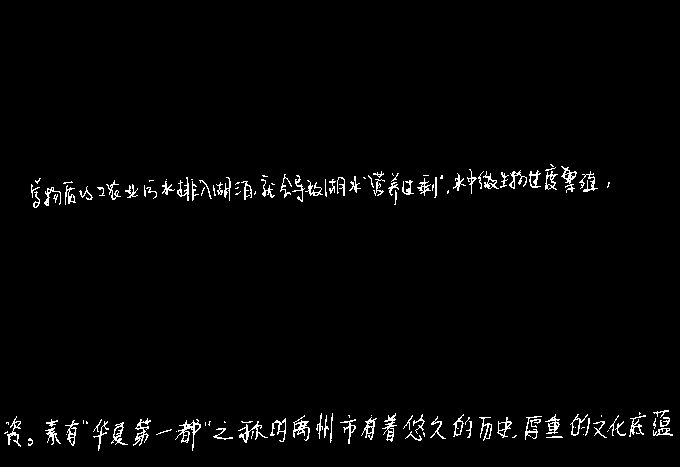 营物质的工农业污水排入湖泊,就会导致湖水“营养过剩”,水中微生物过度繁殖,
资。素有“华夏第一都”之称的禹州市有着悠久的历史,厚重的文化底蕴